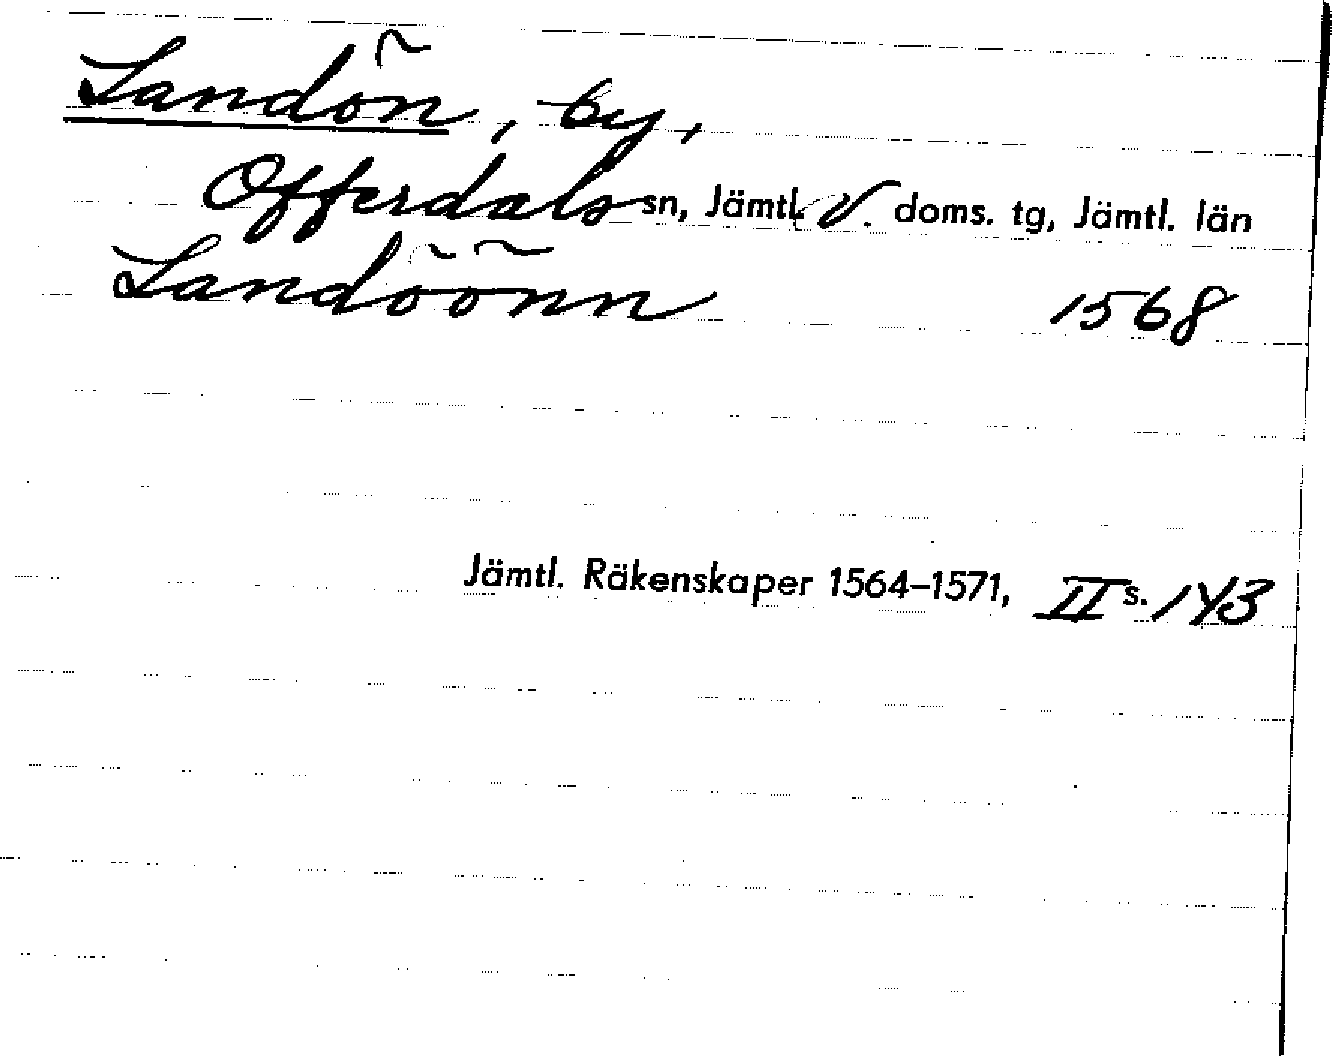 Landön, by,
Offerdals sn, Jämtl. V. doms. tg, Jämtl. län
Landöönn 1568
Jämtl. Räkenskaper 1564–1571, II s. 143